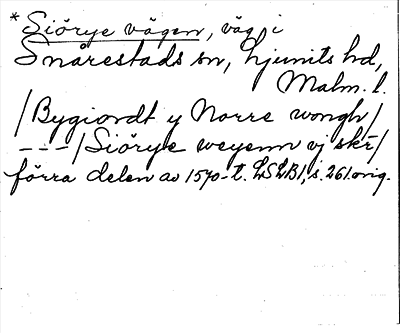 * Siörye vägen, väg i
Snårestads sn, Ljunits hd,
Malm. l.
/Bygiordt y Norre wongh/
---/Siörye weyenn vj skr/
förra delen av 1570-t. LSLB1, s. 261 orig.